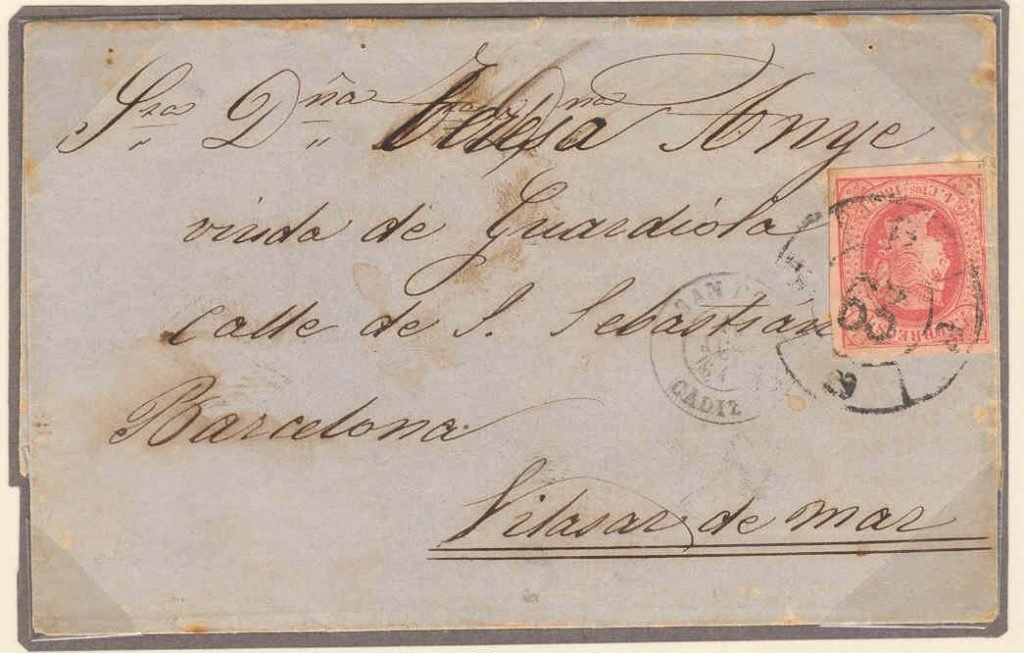 Sra Dña Teresa Anye
viuda de Guardiola
Calle de S. Sebastián
Barcelona
Vilasar de mar
SAN
CADIZ
63